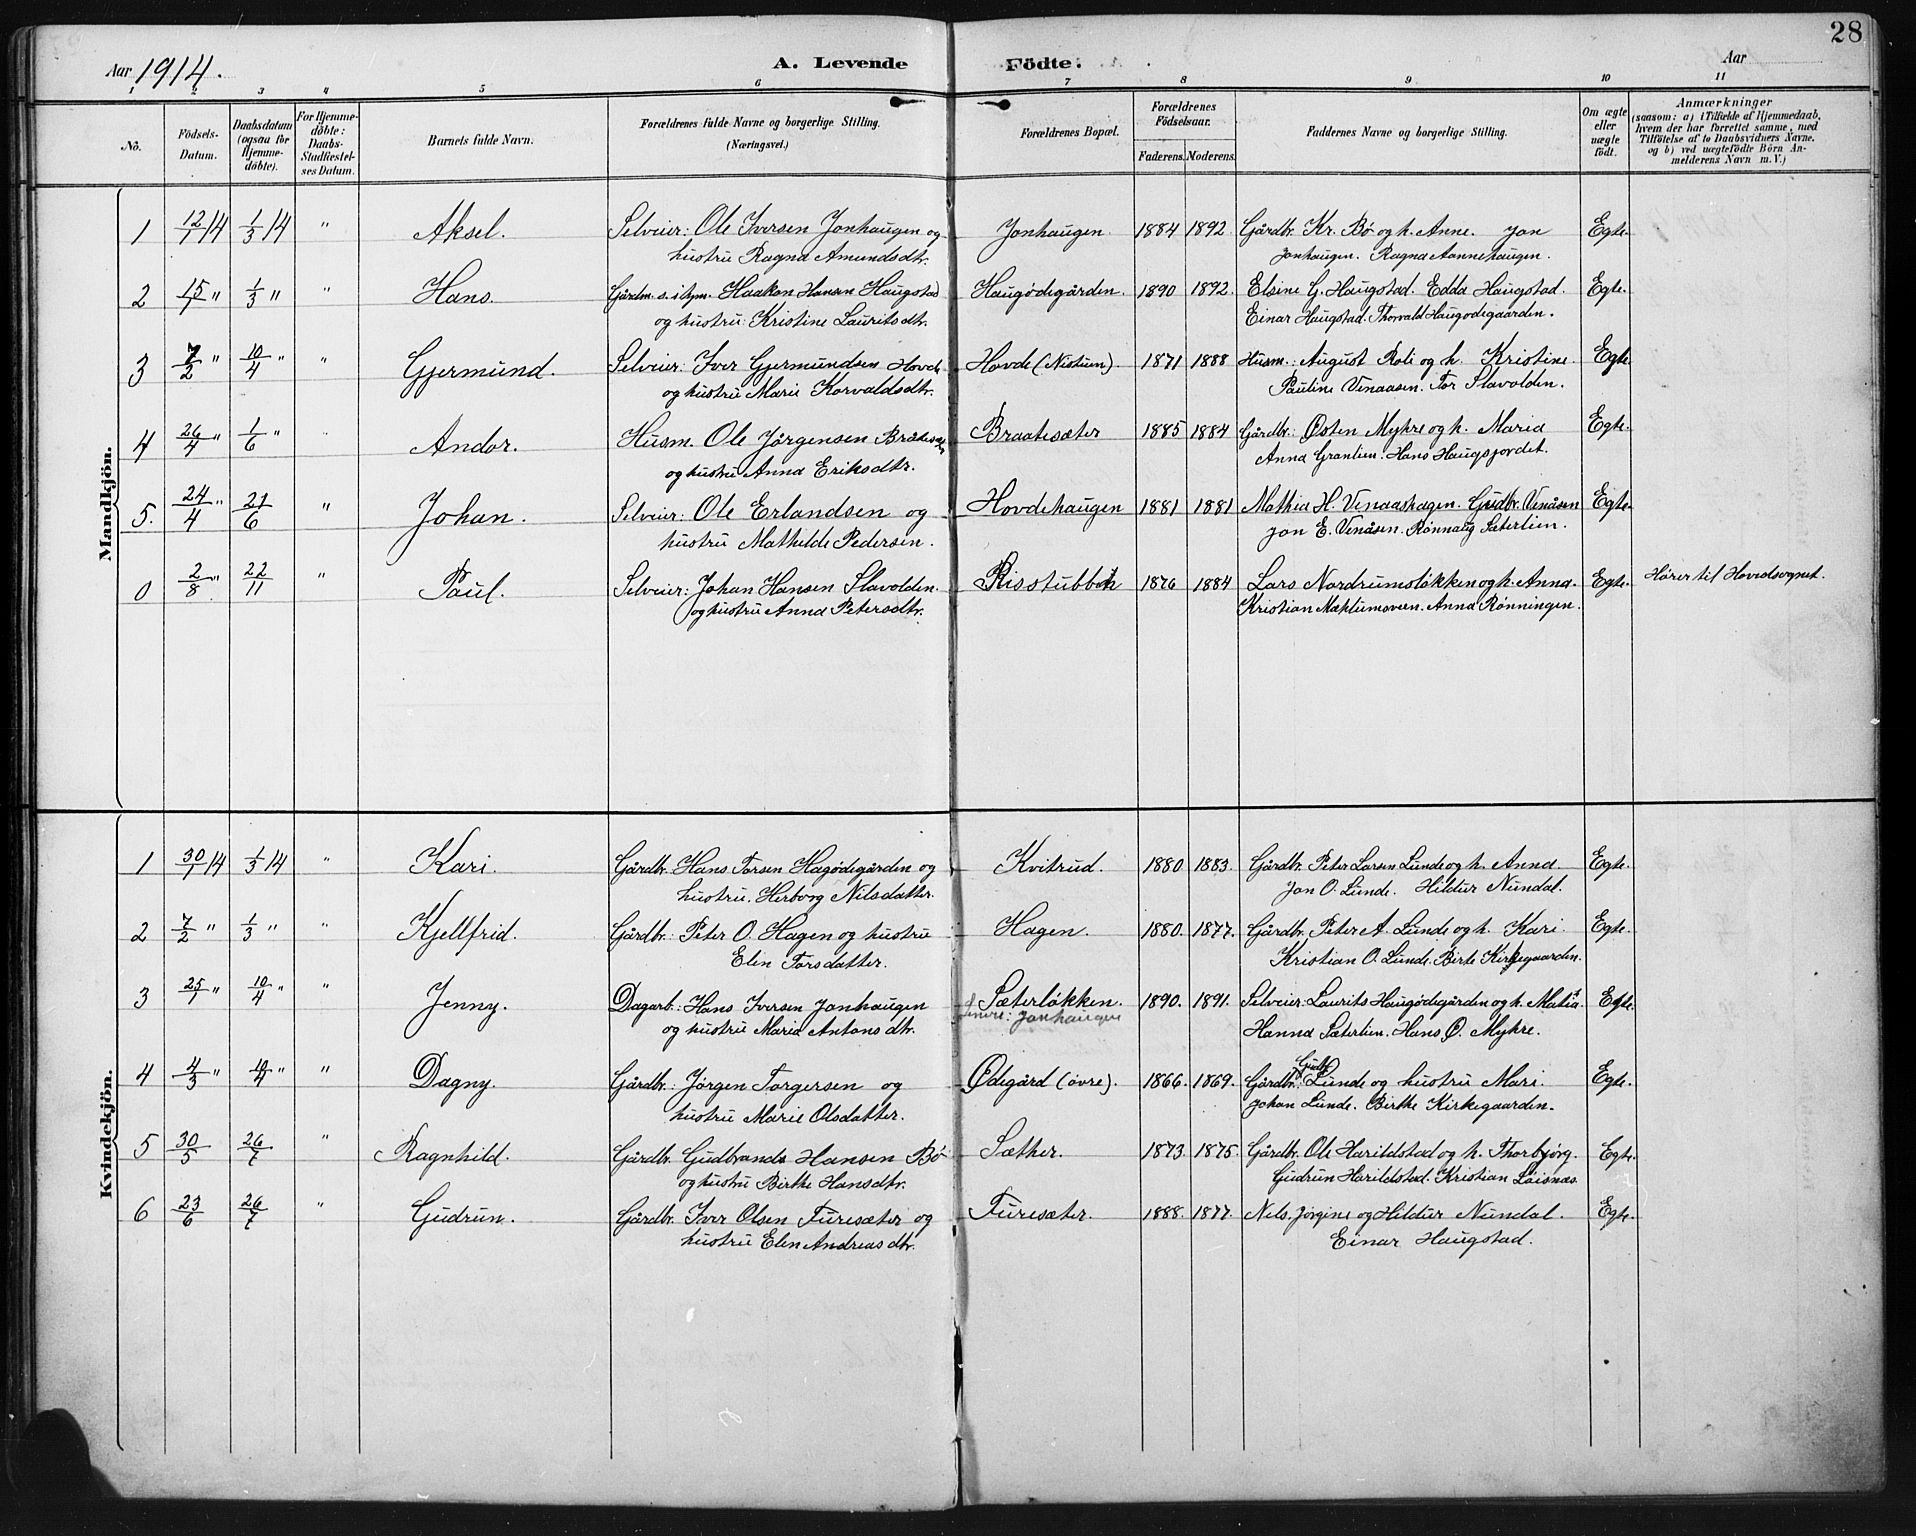 28
Aar 1914. A. Levende Födte. Aar
1 2 3 4 5 6 7 8 9 10 11
No. Födsels-Datum. Daabsdatum (ogsaa for Hjemme-döbte). For Hjemme-döbte: Daabs-Stadfæstel-ses Datum. Barnets fulde Navn. Forældrenes fulde Navne og borgerlige Stilling. (Næringsvei.) Forældrenes Bopæl. Forældrenes Födselsaar. Faderens. Moderens. Faddernes Navne og borgerlige Stilling. Om ægte eller uægte födt. Anmærkninger (saasom: a) i Tilfælde af Hjemmedaab, hvem der har forrettet samme, med Tilföielse af to Daabsvidners Navne. og b) ved uægtefödte Börn An-melderens Navn m. V.)
Mandkjön.
1 12/1 14 1/3 14 " Aksel. Selveier: Ole Iversen Jonhaugen og Jonhaugen. 1884 1892. Gårdbr. Kr. Bø og h. Anne. Jon Egte.
hustru Ragna Amundsdtr. Jonhaugen. Ragna Aannehaugen.
2 15/1 " 1/3 " " Hans. Gårdm. s. i hjm. Haakon Hansen Haugstad Haugødegården. 1890 1892. Elsine G. Haugstad. Edda Haugstad. Egte.
og hustru: Kristine Lauritsdtr. Einar Haugstad. Thorvald Haugødegaarden.
3 7/2 " 10/4 " " Gjermund. Selveier: Iver Gjermundsen Hovde Hovde (Nistuen) 1871 1888 Husm.: August Roli og h. Kristine Egte
og hustru Marie Korvaldsdtr. Pauline Venaasen. Tor Slavolden.
4 26/4 " 1/6 " Andor. Husm. Ole Jørgensen Braatesæter Braatesæter 1885 1884 Gårdbr: Østen Mykre og h. Maria Egte.
og hustru Anna Eriksdtr. Anna Granlien. Hans Haugsjordet.
5. 24/4 " 21/6 " Johan. Selveier: Ole Erlandsen og Hovdehaugen 1881 1881 Mathea H. Venaashagen. Gudbr. Venåsen Egte.
hustru Mathilde Pedersen. Jon E. Venåsen. Rønnaug Sæterlien.
0 2/8 " 22/11 " Paul. Selveier: Johan Hansen Slavolden. Risstubben 1876 1884 Lars Nordrumsløkken og h. Anna. Egte. Hører til Hovedsognet.
og hustru Anna Petersdtr. Kristian Mæhlumsveen. Anna Rønningen.
Kvindekjön.
1 30/1 14 1/3 14 " Kari. Gårdbr. Hans Torsen Hagødegården og Kvitrud. 1880 1883. Gårdbr. Peter Larsen Lunde og h. Anna. Egte.
hustru. Herborg Nilsdatter. Jon O. Lunde. Hildur Nundal.
2 7/2 " 1/3 " " Kjellfrid. Gårdbr.: Peter O. Hagen og hustru Hagen. 1880. 1877. Gårdbr. Peter A. Lunde og h. Kari. Egte.
Elin Torsdatter. Kristian O. Lunde. Birte Kirkegaarden.
3 25/1 " 10/4 " " Jenny. Dagarb.: Hans Iversen Jonhaugen Sæterløkken. 1890. 1891. Selveier: Laurits Haugødegården og h. Matia. Egte.
og hustru Maria Antonsdtr. senere: Jonhaugen Hanna Sæterlien. Hans Ø. Mykre.
4 4/3 " 10/4 " " Dagny. Gårdbr.: Jørgen Torgersen og Ødegård (øvre). 1866. 1869. Gårdbr. Gudbr. Lunde og hustru Mari. Egte.
hustru Marie Olsdatter. Johan Lunde. Birthe Kirkegaarden.
5 30/5 26/7 " Ragnhild. Gårdbr. Gudbrands Hansen Bø Sæther. 1873. 1875. Gårdbr. Ole Harildstad og h. Thorbjørg. Egte.
og hustru Birthe Hansdtr. Gudrun Harildstad. Kristian Loisnas.
6 23/6 26/7 " Gudrun. Gårdbr. Iver Olsen Furesæter og Furesæter. 1888. 1877. Nels, Jørgine og Hildur Nundal. Egte.
hustru Elen Andreasdtr. Einar Haugstad.